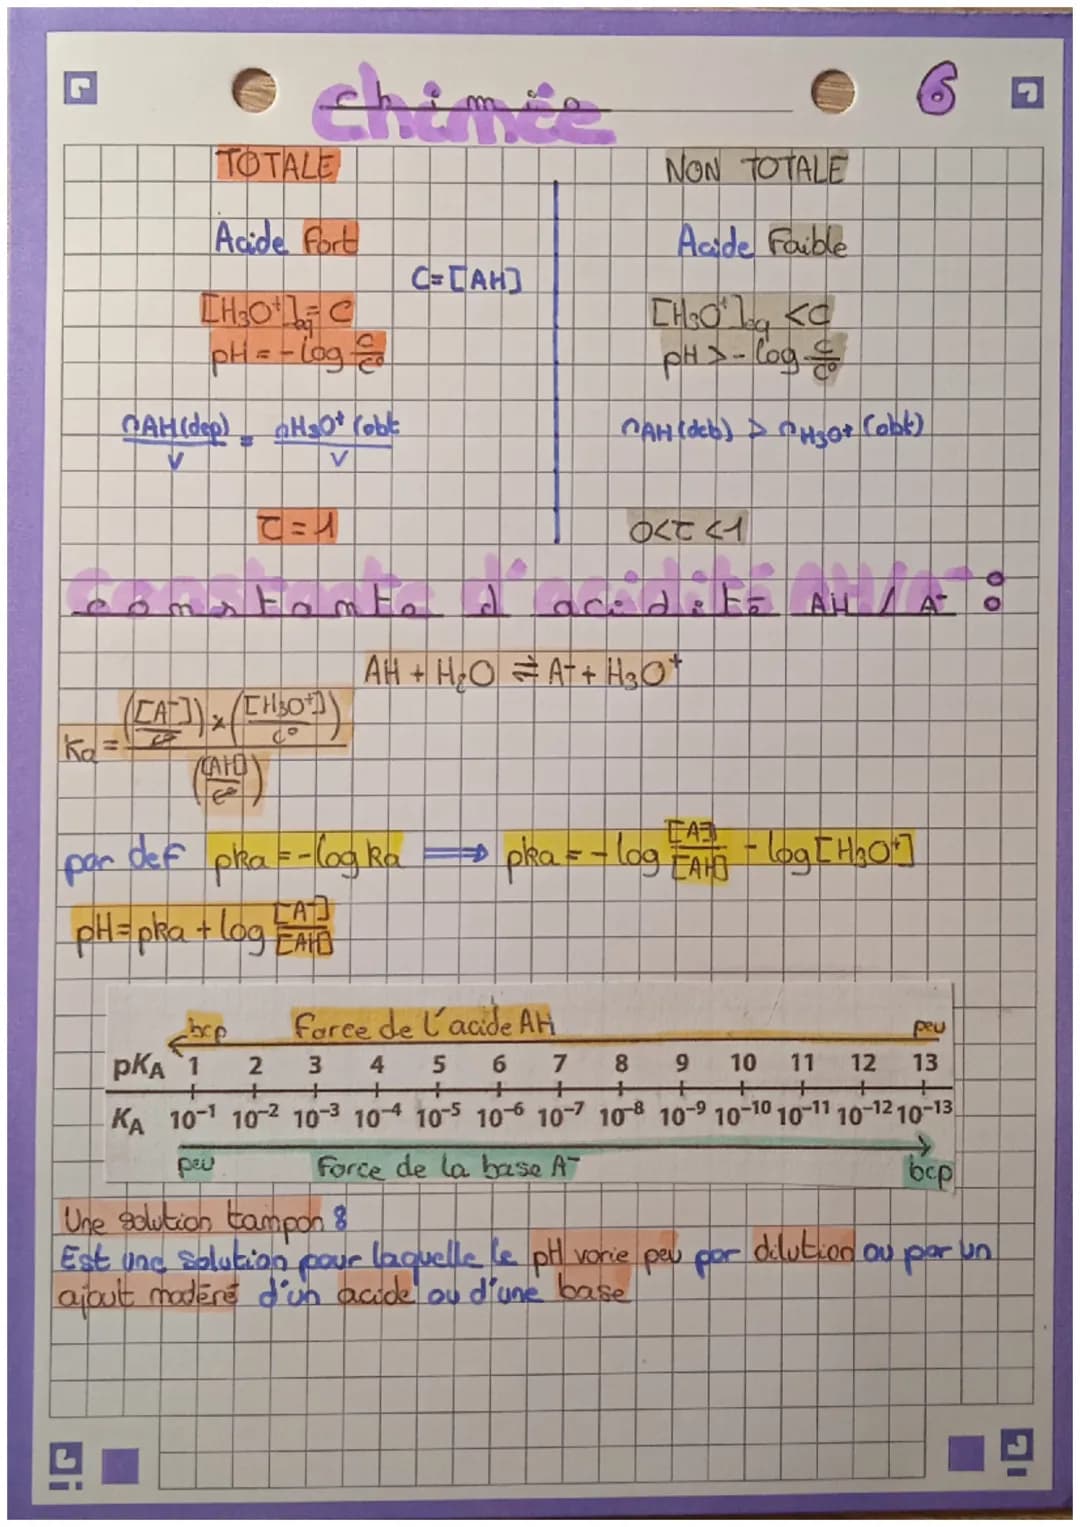 chimie 6
TOTALE NON TOTALE
Acide Fort Acide Faible
C=[AH]
[H₃O⁺]éq = C [H₃O⁺]éq < C
pH = -log C/C° pH > -log C/C°
nAH(dep)/V = nH₃O⁺(obt/V nAH(deb) > nH₃O⁺(obt)
τ=1 0<τ<1
constante d'acidité AH/A⁻ :
AH + H₂O ⇌ A⁻ + H₃O⁺
Ka = (([A⁻])/C°) × ([H₃O⁺])/C°) / ([AH]/C°)
par def pka = -log Ka ⟹ pka = -log [A⁻]/[AH] - log[H₃O⁺]
pH = pka + log [A⁻]/[AH]
bcp Force de l'acide AH peu
pKA 1 2 3 4 5 6 7 8 9 10 11 12 13
KA 10⁻¹ 10⁻² 10⁻³ 10⁻⁴ 10⁻⁵ 10⁻⁶ 10⁻⁷ 10⁻⁸ 10⁻⁹ 10⁻¹⁰ 10⁻¹¹ 10⁻¹² 10⁻¹³
peu Force de la base A⁻ bcp
Une solution tampon :
Est une solution pour laquelle le pH varie peu par dilution ou par un
ajout modéré d'un acide ou d'une base